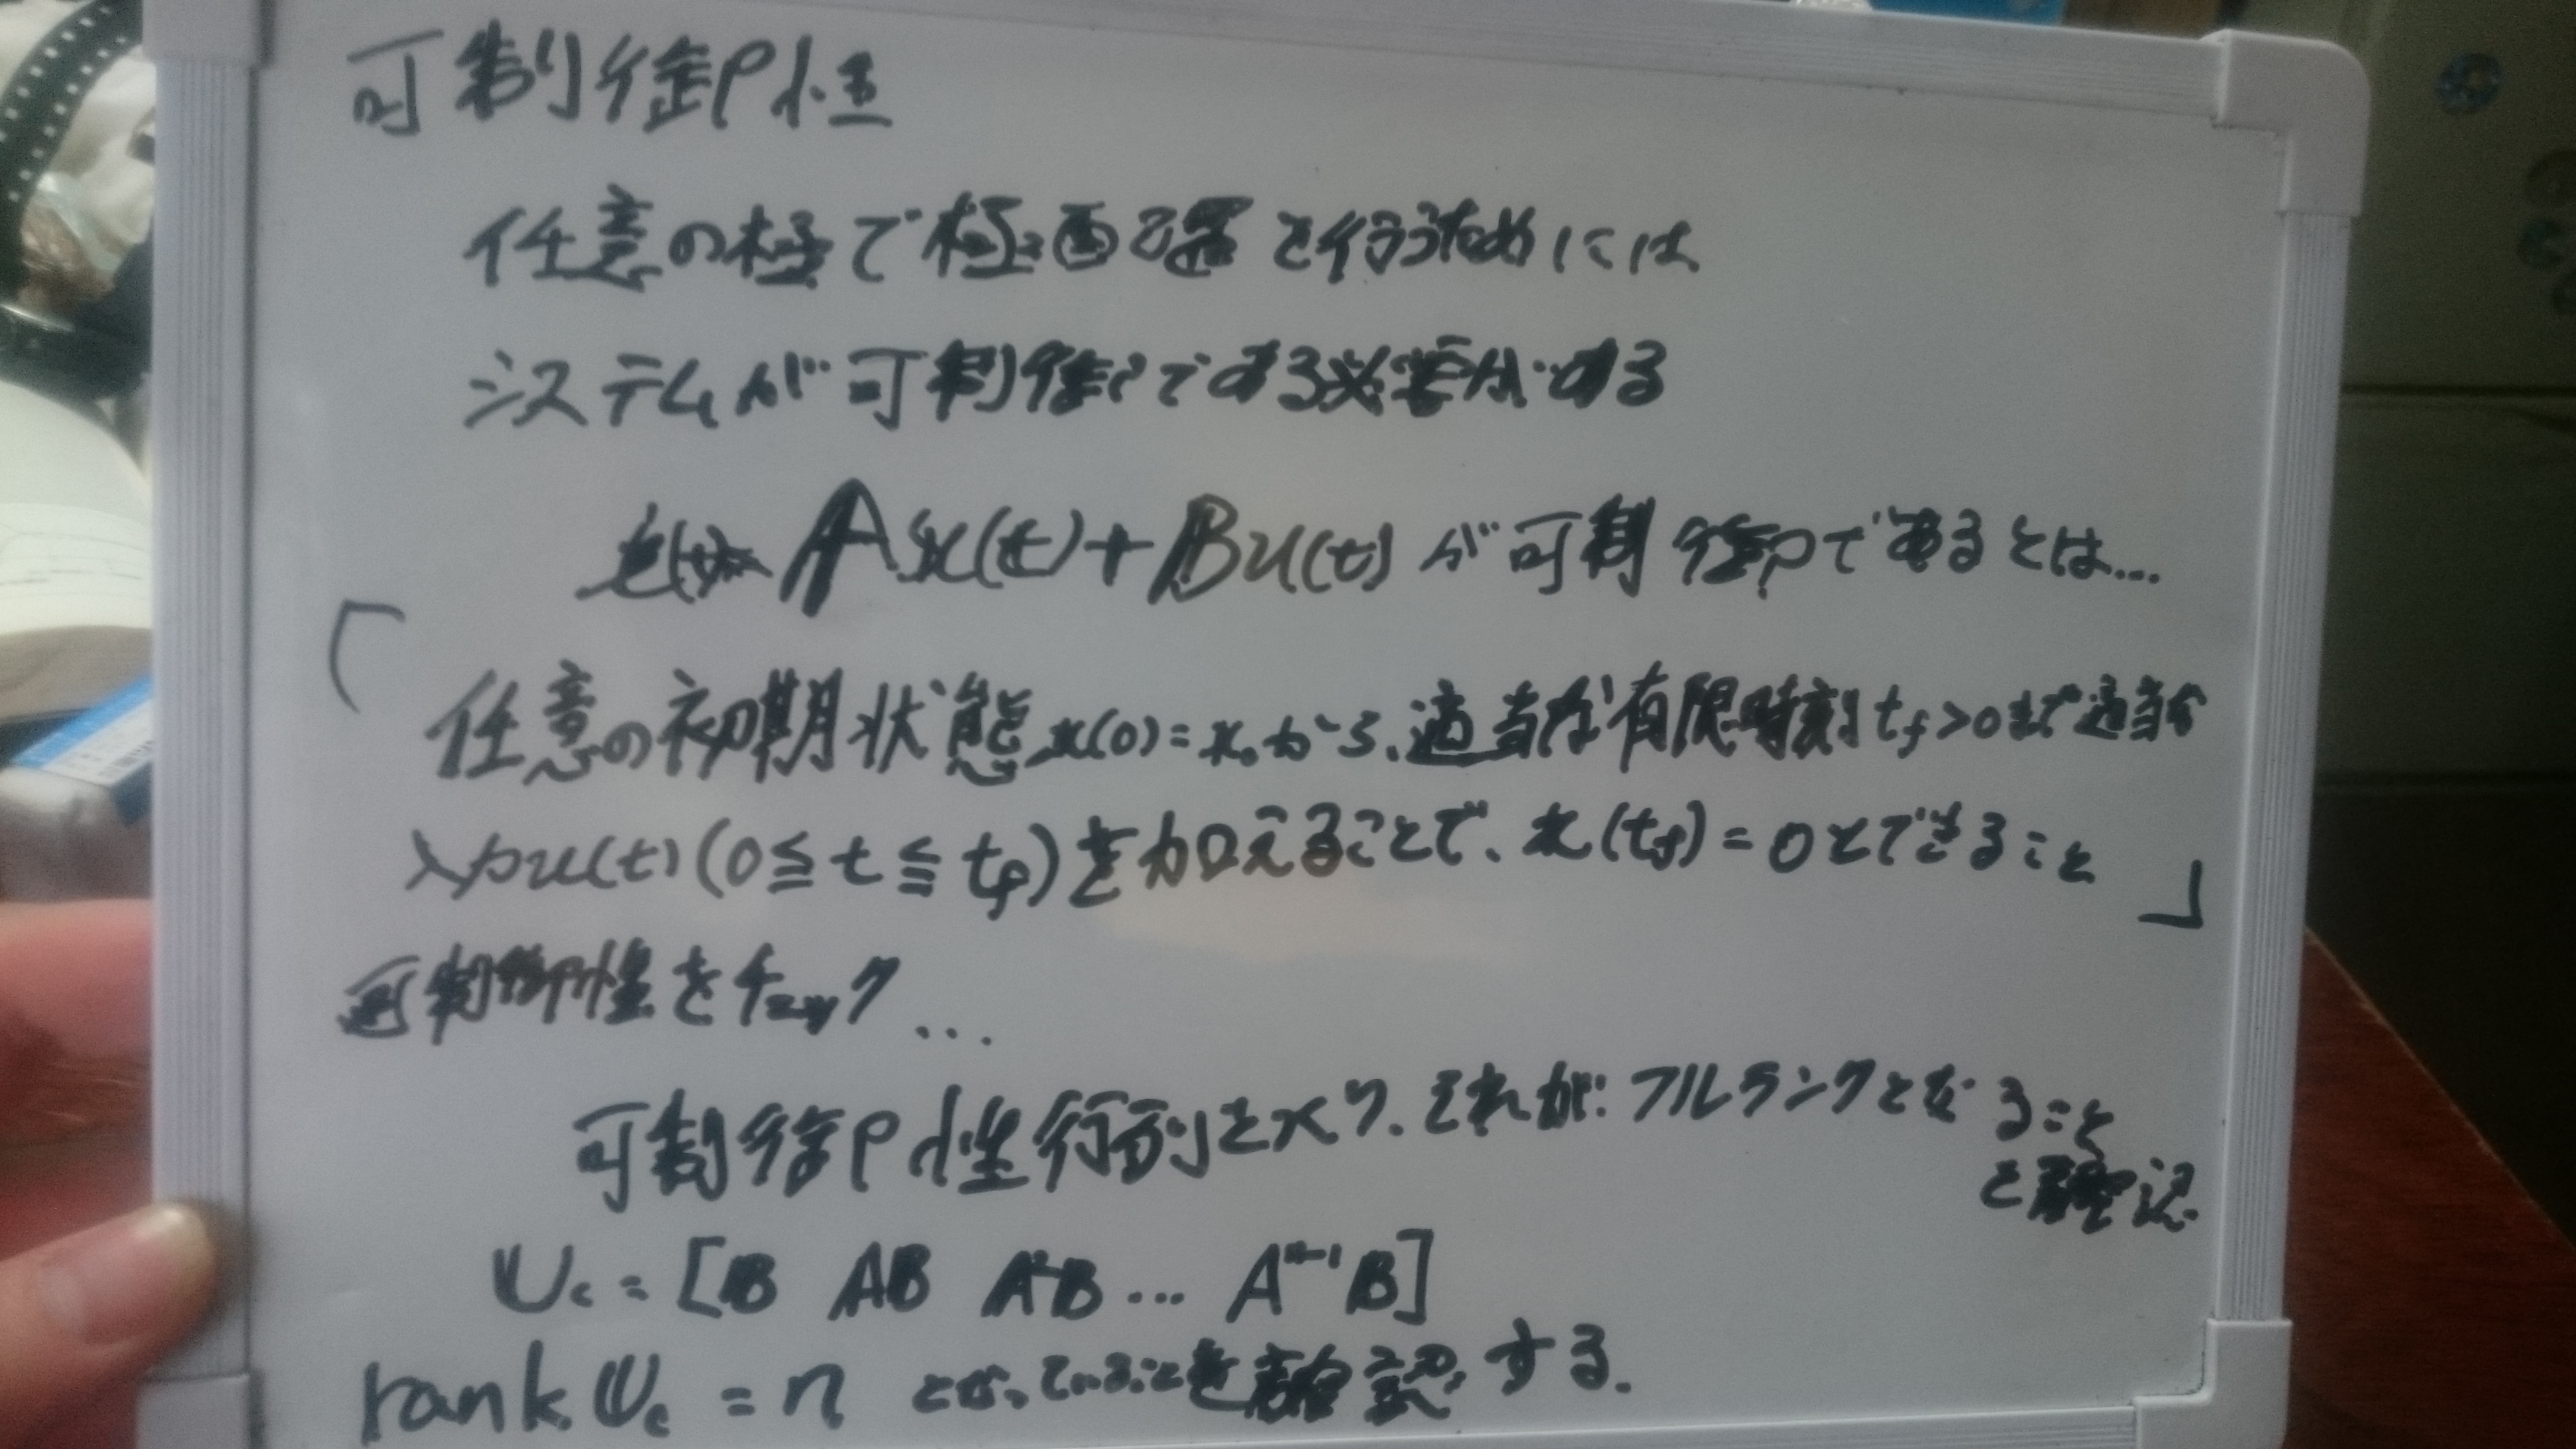 可制御性
任意の極で極配置を行うためには
システムが可制御である必要がある
ẋ(t)=Ax(t)+Bu(t)が可制御であるとは…
「任意の初期状態x(0)=x₀から、適当な有限時刻t_f>0まで適当な
入力u(t)(0≦t≦t_f)を加えることで、x(t_f)=0とできること」
可制御性をチェック…
可制御性行列を求め、それが フルランクとなること
を確認
U_c=[B AB A²B … Aⁿ⁻¹B]
rank U_c = n となっていることを確認する.